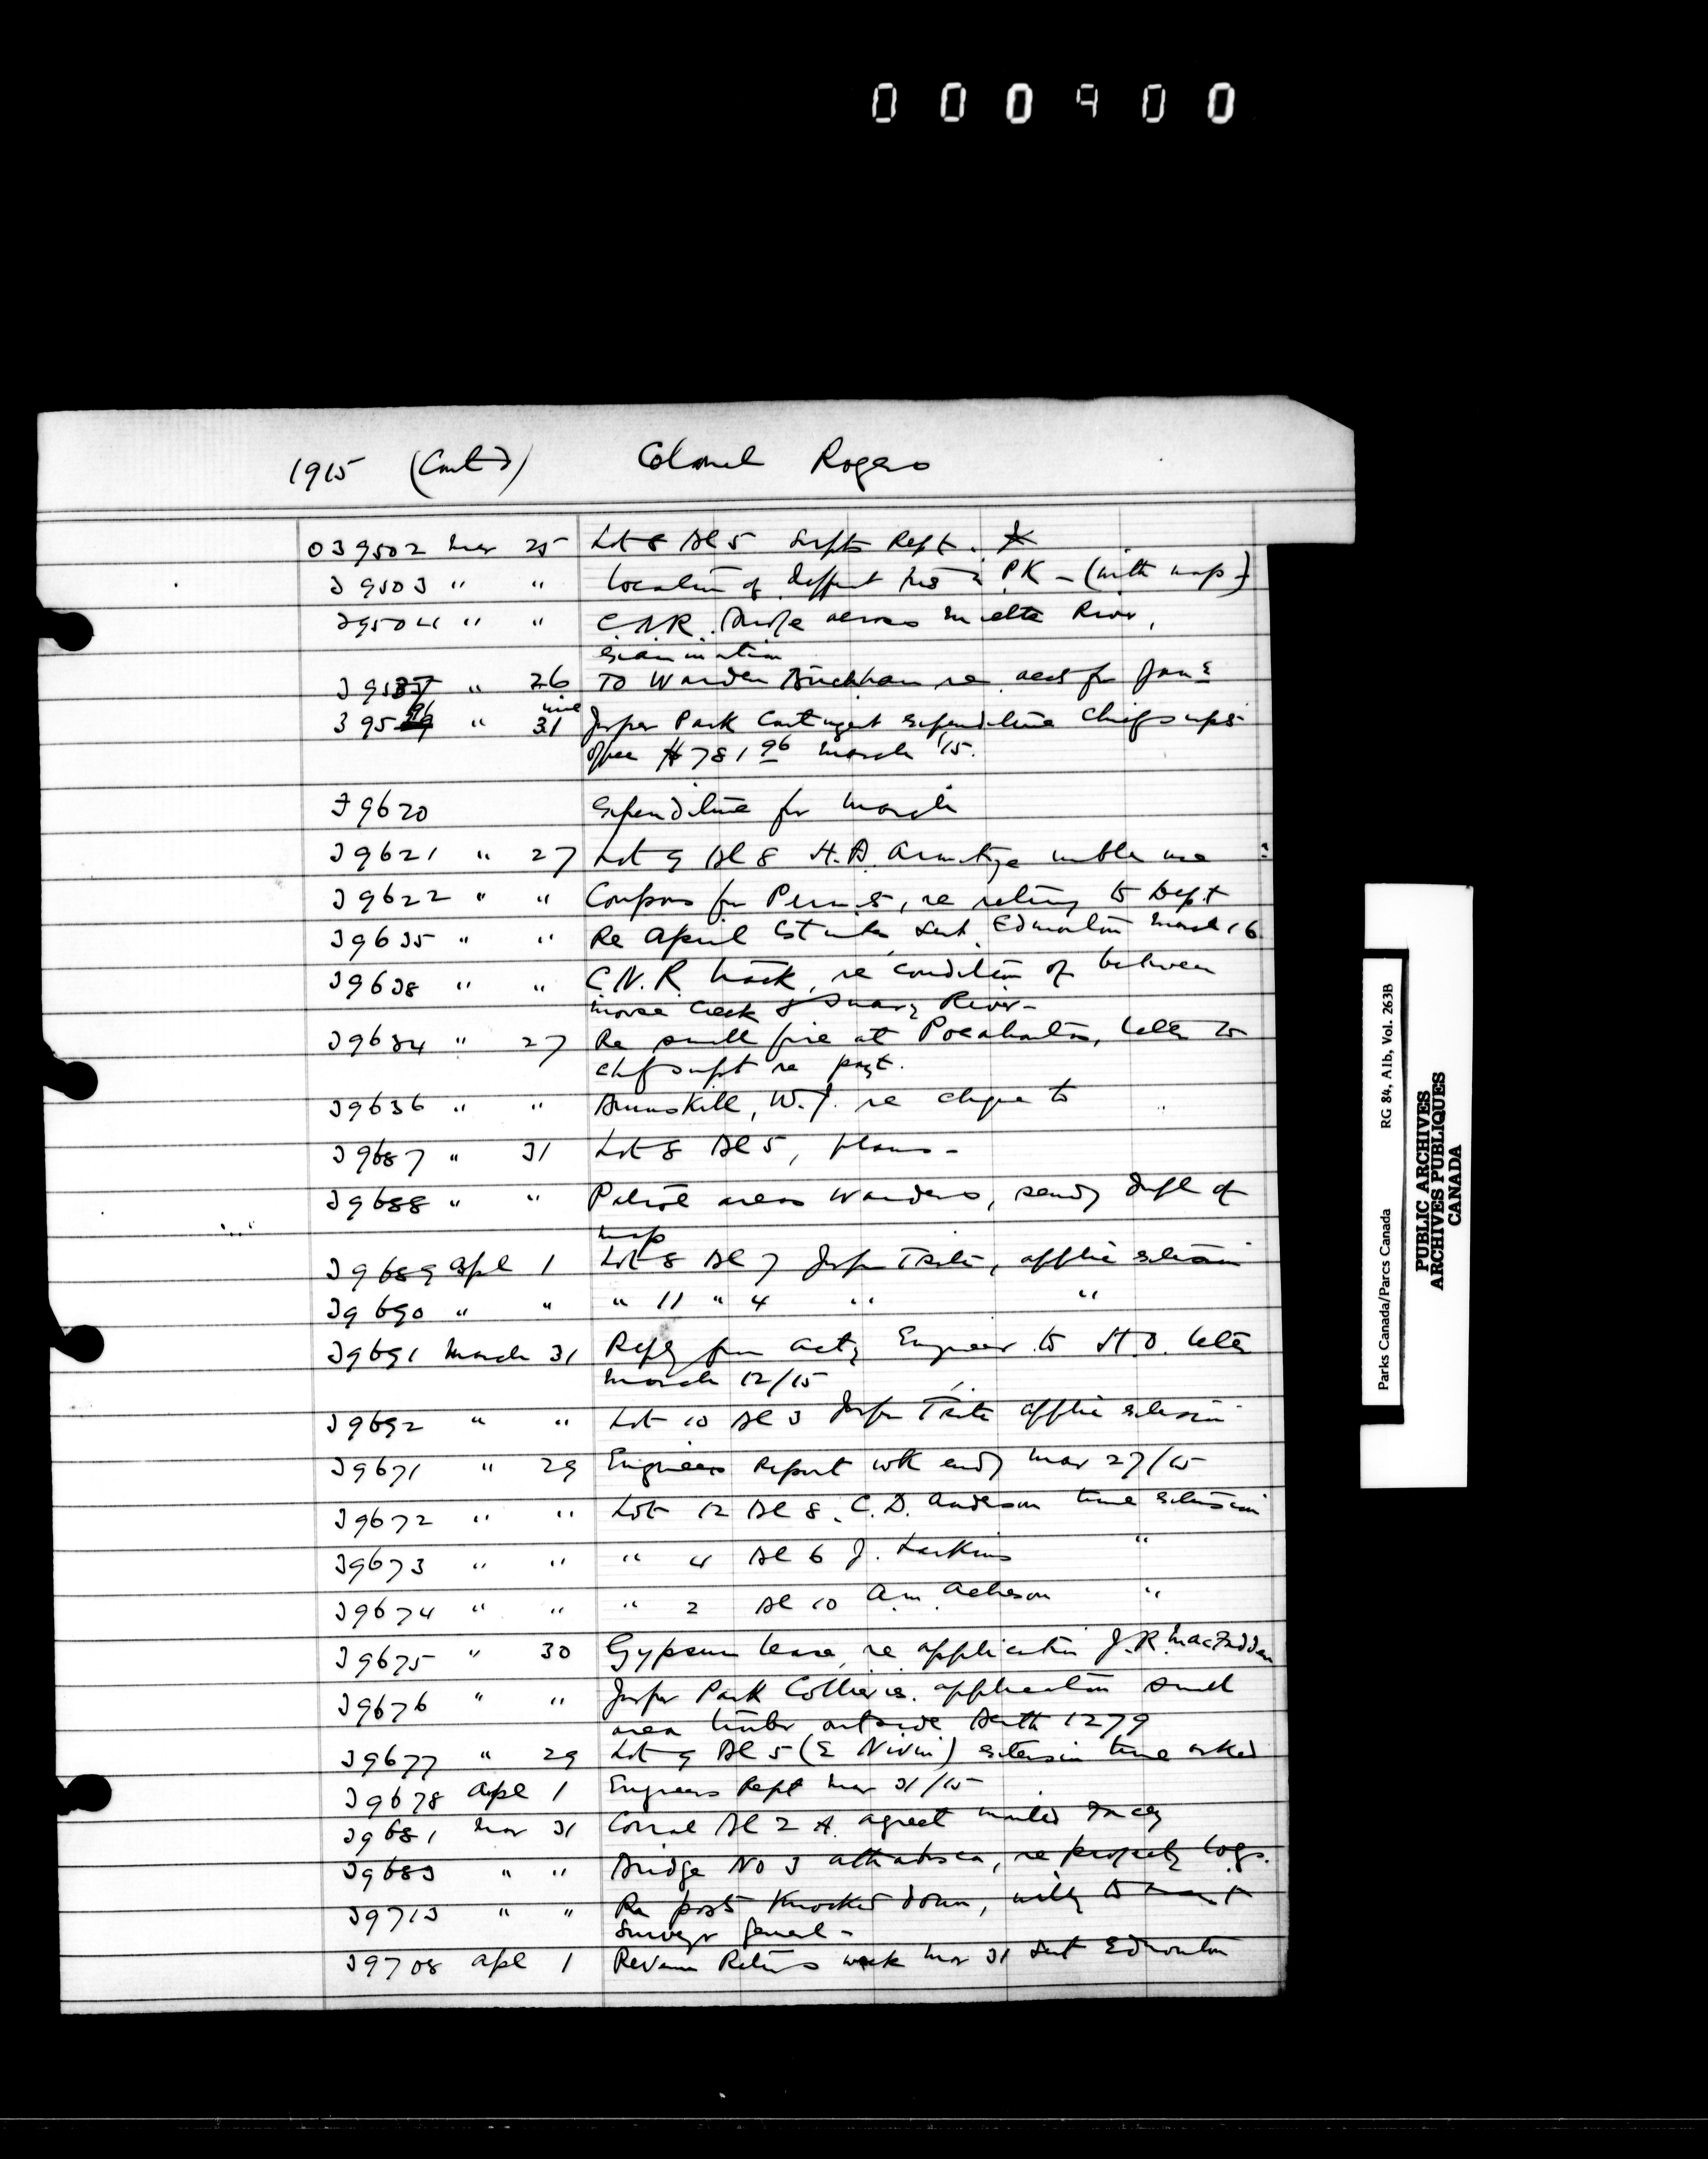 000900
1915 (Cont'd) Colonel Rogers
O39502 Mar 25 Lot 8 Bl 5 Supts Rept.
39503 " " Location of diffent in PK - (with map)
39504 " " C.N.R. Bridge across Miette River,
examination
" 26 To Warden re acct for
395 " 31 Jasper Park Contingent Expenditure Chief Supts
Office $781 96 March '15.
39620 Expenditure for March
39621 " 27 Lot 9 Bl 8 H.A. Armitage unable
39622 " " Coupons for Permits, re return to Dept
39635 " " Re April Estimates sent Edmonton March 16
39638 " " C.N.R. track, re condition of between
Moose Creek & Snaring River -
39634 " 27 Re small fire at Pocahontas, letter to
chf supt re payt.
39636 " " Brunskill, W.J. re cheque to
39687 " 31 Lot 8 Bl 5, plans -
39688 " " Patrol areas Wardens, sendg dupl of
map
39689 Apl 1 Lot 8 Bl 7 Jasper applic extension
39690 " " " 11 " 4 " "
39691 March 31 Reply from actg Engineer to H.O. letter
March 12/15
39692 " " Lot 10 Bl 3 Jasper applic extension
39671 " 29 Engineers Report wk endg Mar 27/15
39672 " " Lot 12 Bl 8. C.D. Anderson time extension
39673 " " " 4 Bl 6 J. Larkins "
39674 " " " 2 Bl 10 A.M. Acheson "
39675 " 30 Gypsum lease, re application J.R. MacFadden
39676 " " Jasper Park Collieries. application small
area timber outside Berth 1279
39677 " 29 Lot 9 Bl 5 (E Nivin) extension time asked
39678 Apl 1 Engineers Rept Mar 31/15
39681 Mar 31 Corral Bl 2 A. agreet
39683 " " Bridge No 3 Athabasca, re property logs.
39713 " " Re posts knocked down, to
Surveyor General -
39708 Apl 1 Revenue Returns week Mar 31 sent Edmonton
Parks Canada/Parcs Canada RG 84, A1b, Vol. 263B
PUBLIC ARCHIVES
ARCHIVES PUBLIQUES
CANADA